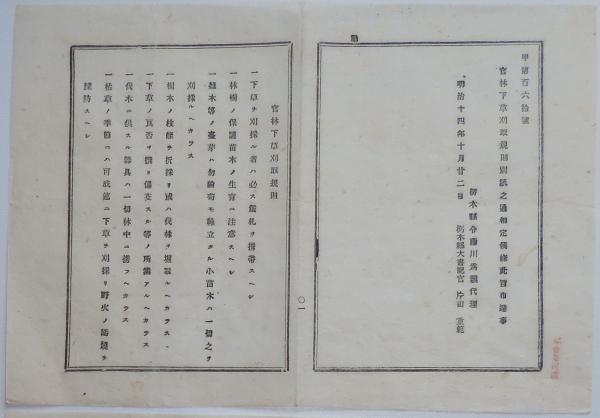 甲第百六拾號
官林下草刈取規則別紙之通相定候條此旨布達事
明治十四年十月廿二日
栃木縣令藤川爲親代理
栃木縣大書記官 片山重範
〇一
官林下草刈取規則
一下草ヲ刈採ル者ハ必ス鑑札ヲ携帶スヘシ
一林樹ノ保護苗木ノ生育ニ注意スヘシ
一雜木等ノ萠芽ハ勿論苟モ幹立タル小苗木ハ一切之ヲ
刈採ルヘカラス
一樹木ノ枝條ヲ折採リ或ハ伐株ヲ堀取ルヘカラス
一下草ノ眞否ヲ慣リ偏安スル等ノ所業アルヘカラス
一伐木ニ供スル器具ハ一切林中ニ携フヘカラス
一枯草ノ季節ニハ可成丈ニ下草ヲ刈採リ野火ノ延燒ヲ
豫防スヘシ